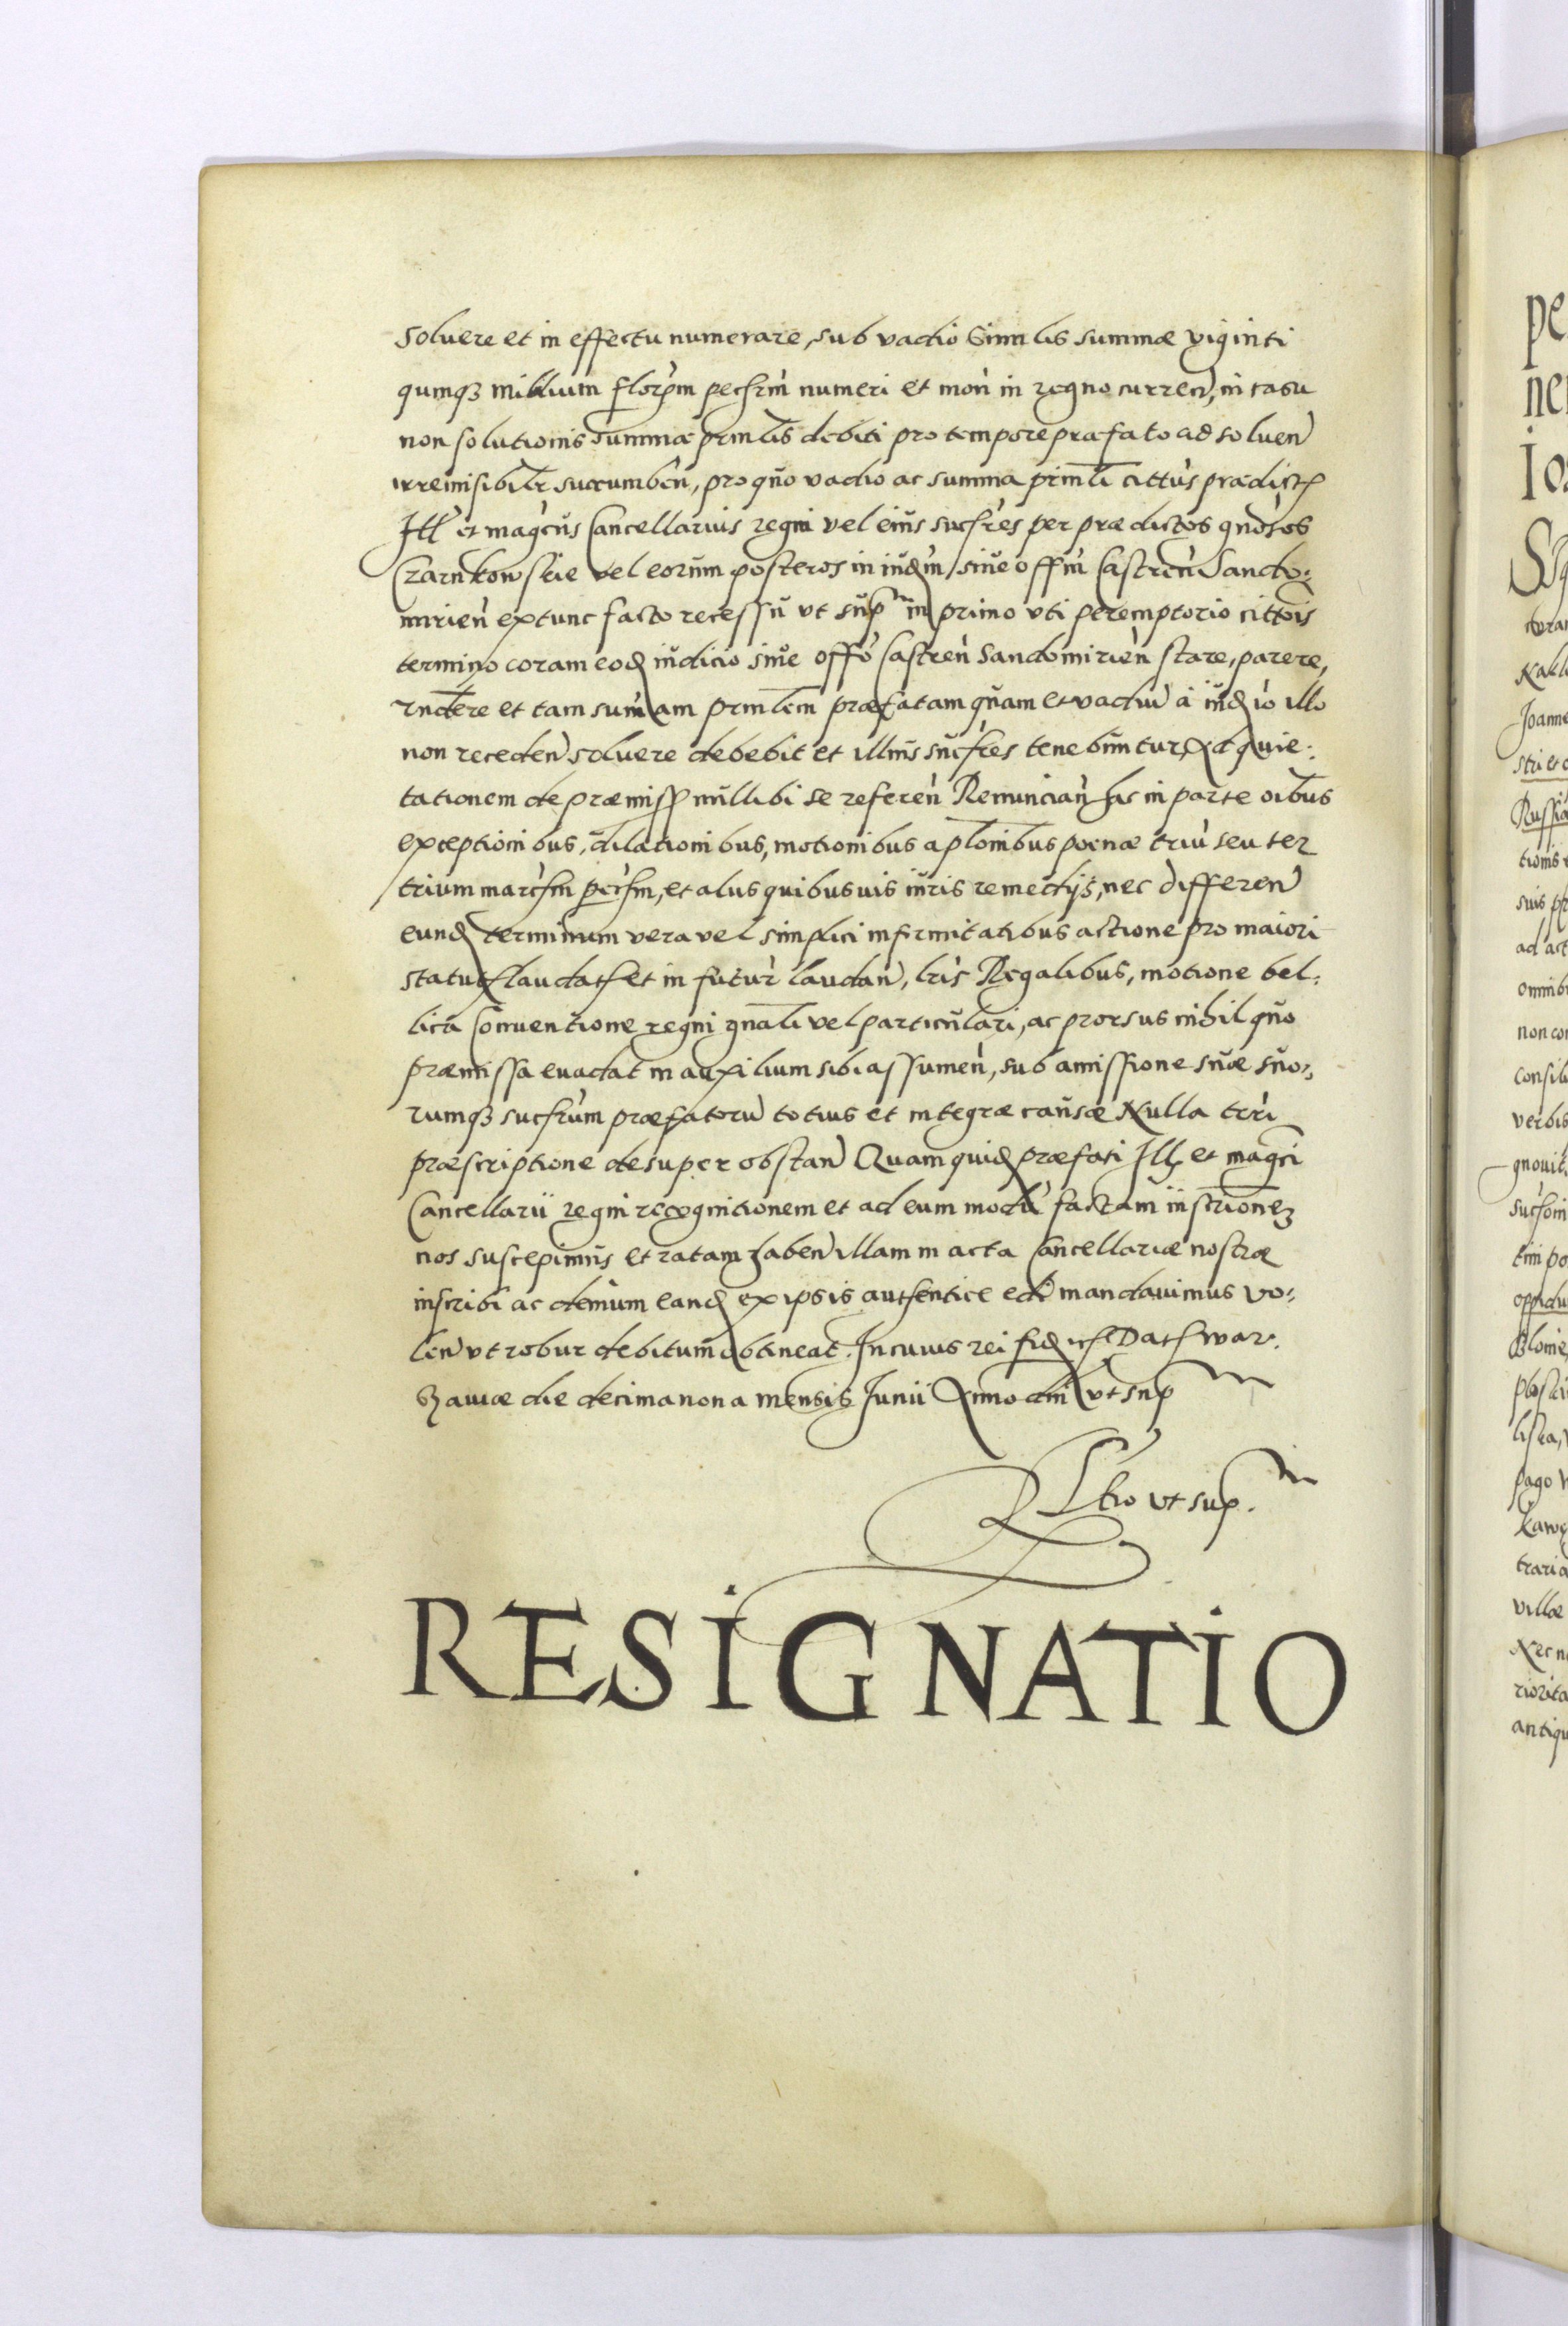 soluere et in effectu numerare, sub vadio similis summæ viginti
quinqz millium florꝑm pecḣrm̀ numeri et moǹ in regno curreǹ, in casu
non solutionis summæ prin̄lis debiti pro tempore præfato ad soluen̄
irremisibil̄r succumben̄, pro qūo vadio ac summa prin̄li cittùs prædict̄
Ill̄ et magcūs Cancellarius regni vel eiūs sucr̄es per prædictos gn̄osos
Czarnkowskie vel eorum posteros in iūdm̀ siūe offm̀ Castreǹ Sando-
mirieǹ extunc facto recessu vt sup̄ in primo vti peremptorio citto̅is
termino coram eod̄ iudicio siūe offo̅ Castreǹ Sandomirieǹ stare, parere,
rnd̄ere et tam sum̀am prin̄lem præfatam qūam et vadiū à iūd̄io illo
non receden̄ soluere debebit et illiūs sucr̄es tenebuntur, Ad quie-
tationem de præmiss̄ nullibi se refereǹ Renunciaǹ hac in parte oībus
exceptionibus, dilationibus, motionibus apl̄onibus poenæ triū seu ter
trium marc̄hm pec̄hm, et alijs quibusuis iuris remedijs, nec differen̄
eund̄ terminum vera vel simplici infirmitatibus actione pro maiori
statut̄ laudat̄ et in futur̀ laudan̄, lrìs Regalibus, motione bel-
lica Conuentione regni gn̄ali vel particulari, ac prorsus nihil qūo
præmissa euadat in auxilium sibi assumeǹ, sub amissione suæ suo-
rumqz sucr̄um præfatorū totius et integræ causæ Nulla trr̀i
præscriptione desuper obstan̄ Quam quid̄ præfati Ill̄ et magc̄i
Cancellarii regni recognitionem et ad eum modū factam inscr̄ionez
nos suscepimus et ratam haben̄ illam in acta Cancellariæ nostræ
inscribi ac demum eand̄ ex ipsis authentice edi mandauimus vo-
len̄ vt robur debitum obtineat. In cuius rei fid̄ etc̄ Dat̄ War-
szauiæ die decima nona mensis Junii Anno dni̅ vt sup̄
Rl̄tio vt sup̄.
RESIGNATIO